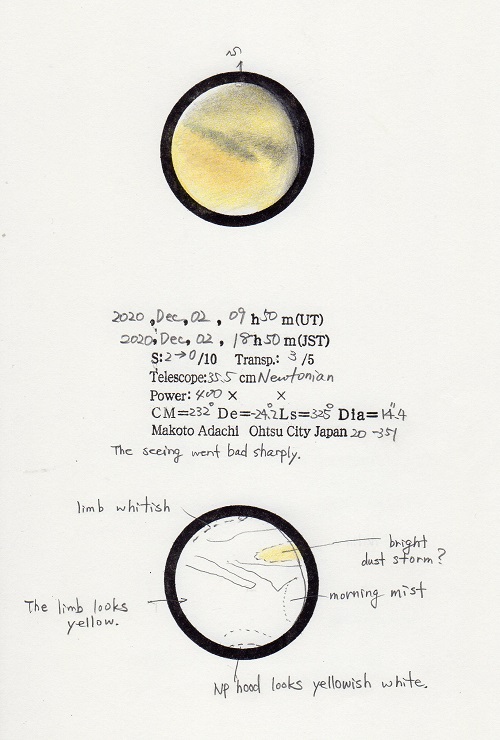 S
2020, Dec, 02, 09 h 50 m (UT)
2020, Dec, 02, 18 h 50 m (JST)
S: 2→0/10 Transp.: 3/5
Telescope: 35.5 cm Newtonian
Power: 400 × ×
CM=232° De=-24.2° Ls=325° Dia=14.4"
Makoto Adachi Ohtsu City Japan 20-351
The seeing went bad sharply.
limb whitish
bright
dust storm?
morning mist
The limb looks
yellow.
NP hood looks yellowish white.